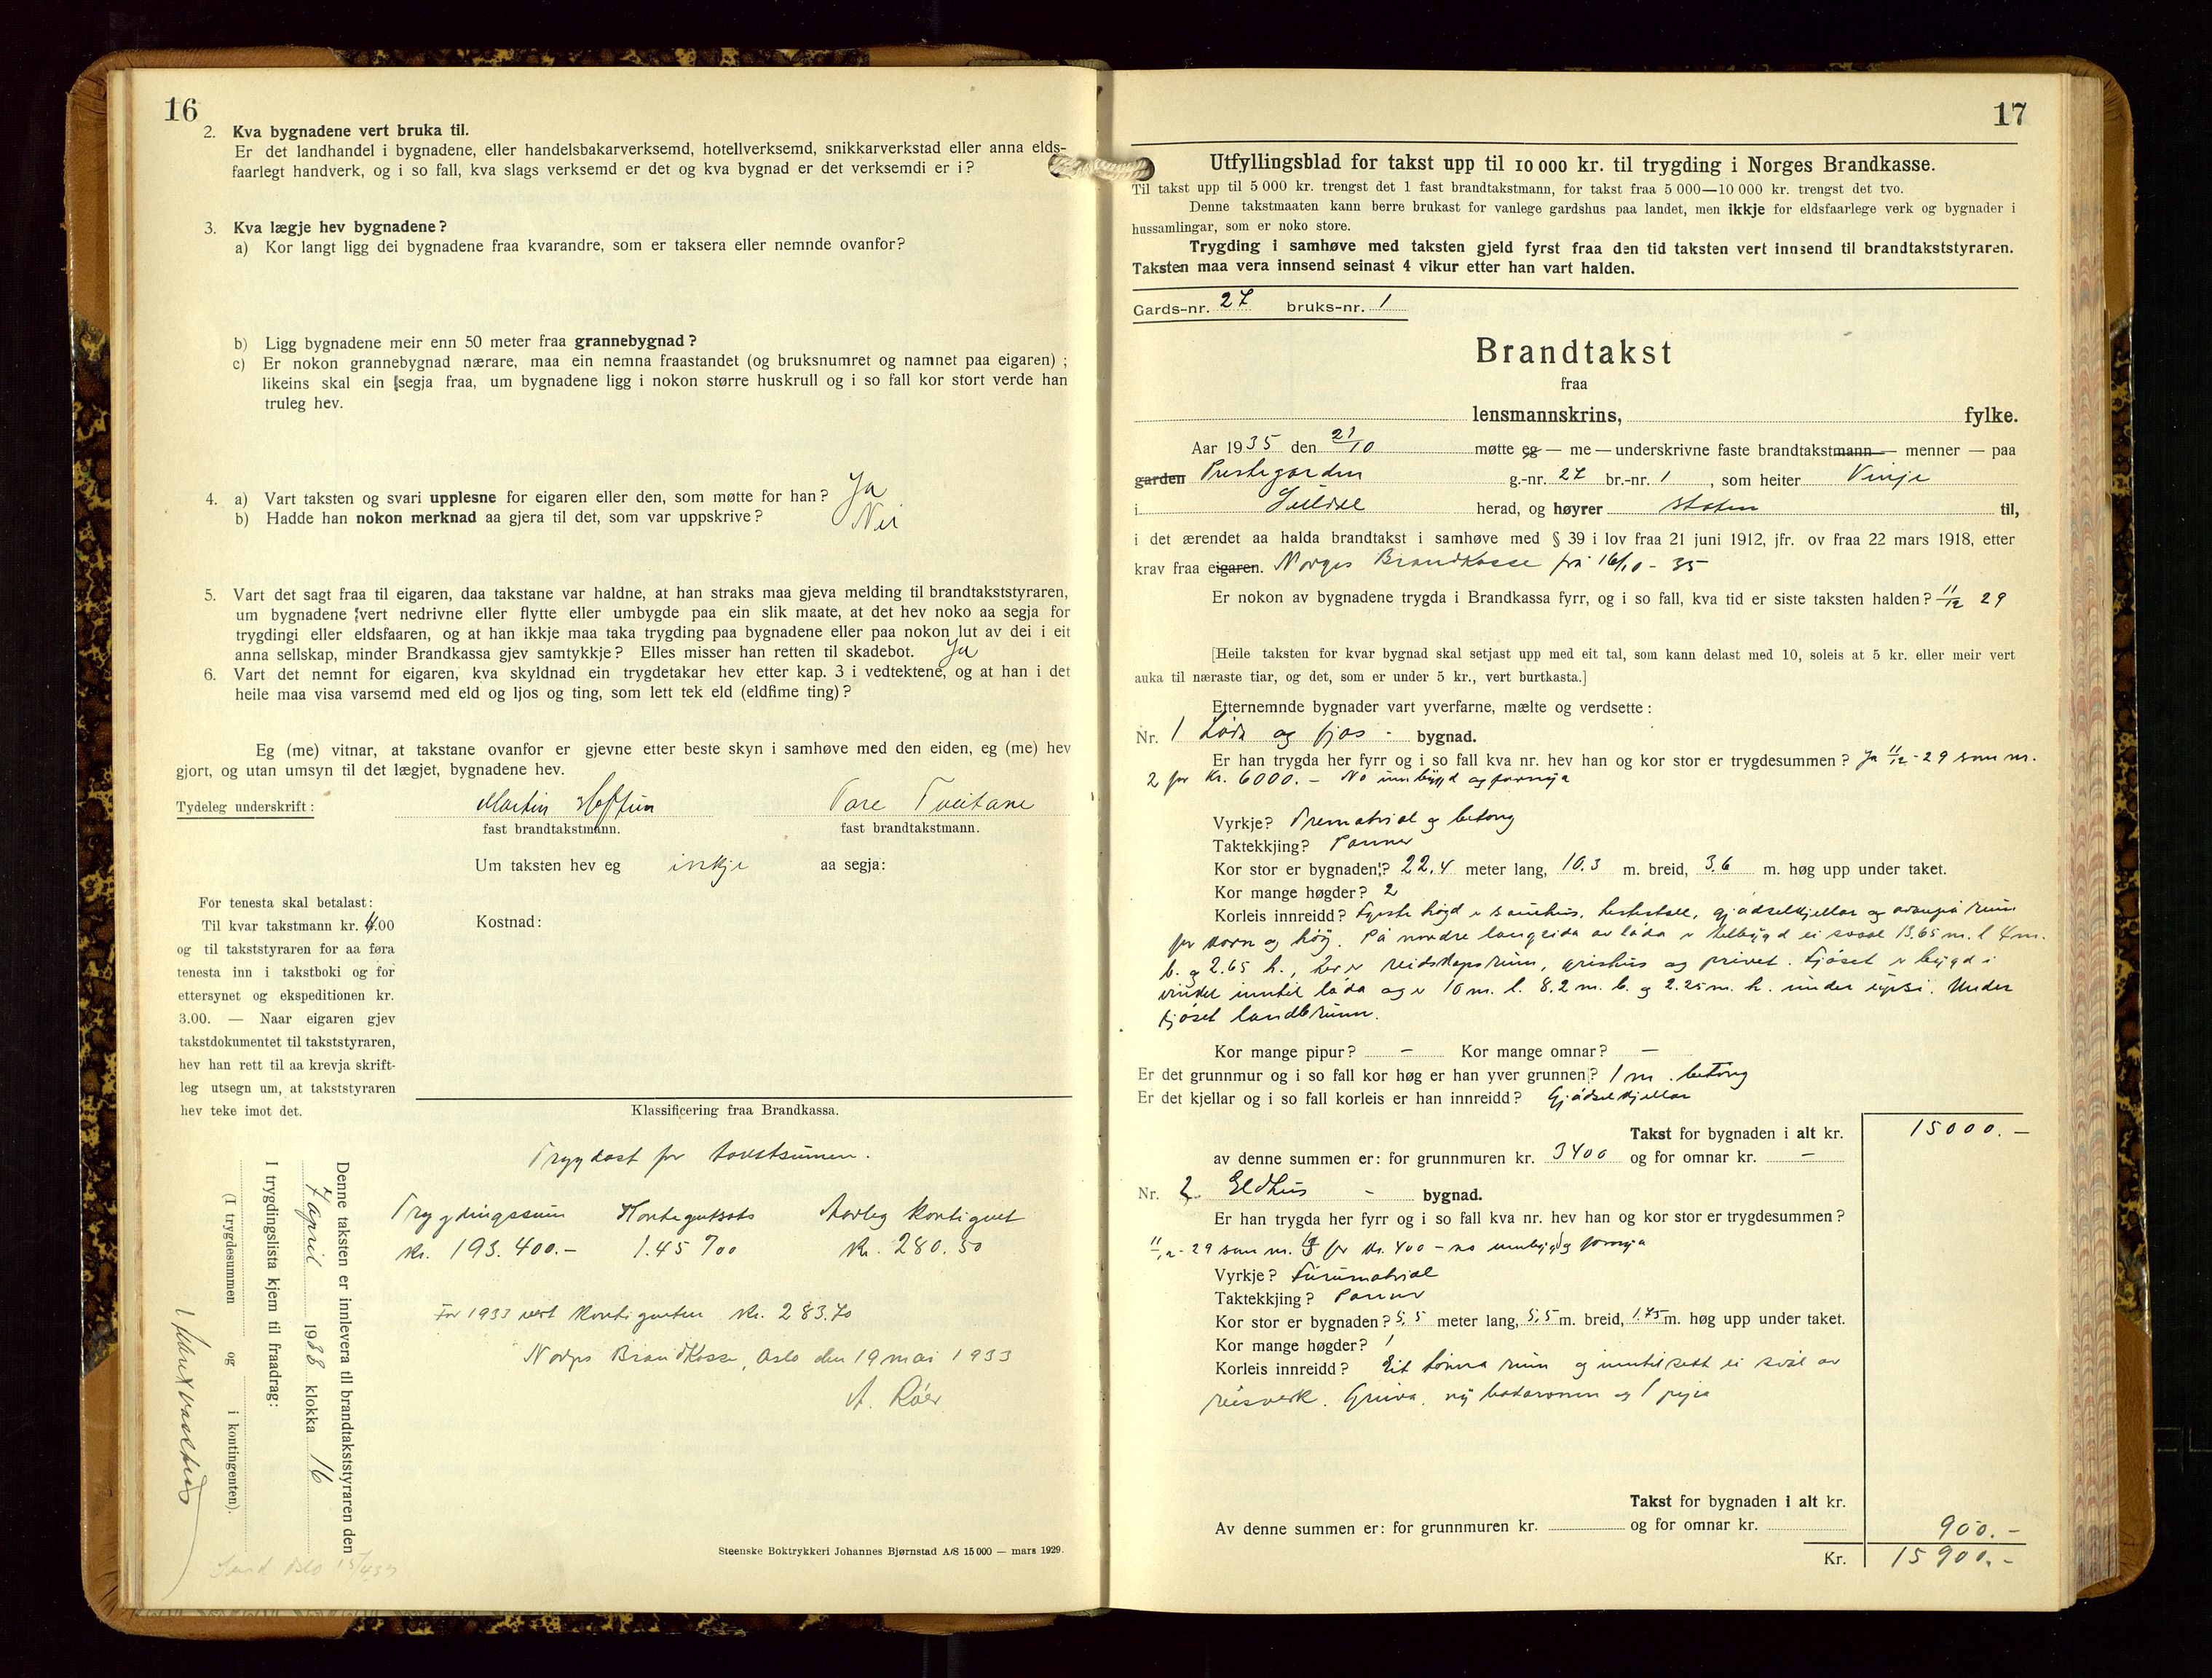 16
2. Kva bygnadene vert bruka til.
Er det landhandel i bygnadene, eller handelsbakarverksemd, hotellverksemd, snikkarverkstad eller anna elds-
faarlegt handverk, og i so fall, kva slags verksemd er det og kva bygnad er det verksemdi er i?
3. Kva lægje hev bygnadene?
a) Kor langt ligg dei bygnadene fraa kvarandre, som er taksera eller nemnde ovanfor?
b) Ligg bygnadene meir enn 50 meter fraa grannebygnad?
c) Er nokon grannebygnad nærare, maa ein nemna fraastandet (og bruksnumret og namnet paa eigaren) ;
likeins skal ein segja fraa, um bygnadene ligg i nokon større huskrull og i so fall kor stort verde han
truleg hev.
4. a) Vart taksten og svari upplesne for eigaren eller den, som møtte for han? Ja
b) Hadde han nokon merknad aa gjera til det, som var uppskrive? Nei
5. Vart det sagt fraa til eigaren, daa takstane var haldne, at han straks maa gjeva melding til brandtakststyraren,
um bygnadene vert nedrivne eller flytte eller umbygde paa ein slik maate, at det hev noko aa segja for
trygdingi eller eldsfaaren, og at han ikkje maa taka trygding paa bygnadene eller paa nokon lut av dei i eit
anna sellskap, minder Brandkassa gjev samtykkje? Elles misser han retten til skadebot. Ja
6. Vart det nemnt for eigaren, kva skyldnad ein trygdetakar hev etter kap. 3 i vedtektene, og at han i det
heile maa visa varsemd med eld og ljos og ting, som lett tek eld (eldfime ting)?
Eg (me) vitnar, at takstane ovanfor er gjevne etter beste skyn i samhøve med den eiden, eg (me) hev
gjort, og utan umsyn til det lægjet, bygnadene hev.
Tydeleg underskrift: Martin Hoftun Tore Tveitane
fast brandtakstmann. fast brandtakstmann.
Um taksten hev eg inkje aa segja:
For tenesta skal betalast:
Til kvar takstmann kr. 4.00
og til takststyraren for aa føra
tenesta inn i takstboki og for
ettersynet og ekspeditionen kr.
3.00. — Naar eigaren gjev
takstdokumentet til takststyraren,
hev han rett til aa krevja skrift-
leg utsegn um, at takststyraren
hev teke imot det.
Kostnad:
Klassificering fraa Brandkassa.
Trygdast for takstsumen.
Trygdingssum Kontigentsats Aarleg kontigent
kr. 193.400.- 1.45 ‰ kr. 280.50
For 1933 vert kontigenten kr. 283.70
Norges Brandkasse, Oslo den 19 mai 1933
A. Róer
Denne taksten er innlevera til brandtakststyraren den
7 april 1933 klokka 16
I trygdingslista kjem til fraadrag:
(I trygdesummen og i kontingenten).
Send Oslo 15/4 33
Steenske Boktrykkeri Johannes Bjørnstad A/S 15 000 — mars 1929.
17
Utfyllingsblad for takst upp til 10 000 kr. til trygding i Norges Brandkasse.
Til takst upp til 5 000 kr. trengst det 1 fast brandtakstmann, for takst fraa 5 000—10 000 kr. trengst det tvo.
Denne takstmaaten kann berre brukast for vanlege gardshus paa landet, men ikkje for eldsfaarlege verk og bygnader i
hussamlingar, som er noko store.
Trygding i samhøve med taksten gjeld fyrst fraa den tid taksten vert innsend til brandtakststyraren.
Taksten maa vera innsend seinast 4 vikur etter han vart halden.
Gards-nr. 27 bruks-nr. 1
Brandtakst
fraa
lensmannskrins, fylke.
Aar 1935 den 21/10 møtte eg — me — underskrivne faste brandtakstmann — menner — paa
garden Prestegarden g.-nr. 27 br.-nr. 1, som heiter Vinje
i Suldal herad, og høyrer staten til,
i det ærendet aa halda brandtakst i samhøve med § 39 i lov fraa 21 juni 1912, jfr. ov fraa 22 mars 1918, etter
krav fraa eigaren. Norges Brandkasse frå 16/10 - 35
Er nokon av bygnadene trygda i Brandkassa fyrr, og i so fall, kva tid er siste taksten halden? 11/12 29
[Heile taksten for kvar bygnad skal setjast upp med eit tal, som kann delast med 10, soleis at 5 kr. eller meir vert
auka til næraste tiar, og det, som er under 5 kr., vert burtkasta.]
Etternemnde bygnader vart yverfarne, mælte og verdsette:
Nr. 1 Løda og fjos - bygnad.
Er han trygda her fyrr og i so fall kva nr. hev han og kor stor er trygdesummen? Ja 11/12 - 29 som nr.
2 for kr. 6000.- No umbygd og fornya
Vyrkje? Trematrial og betong
Taktekkjing? Panner
Kor stor er bygnaden? 22.4 meter lang, 10.3 m. breid, 3.6 m. høg upp under taket.
Kor mange høgder? 2
Korleis innreidd? Fyrste høgd er sauehus, hestestall, gjødselkjellar og ovanpå rum
for korn og høy. På nordre langsida av låda er tilbygd ei sval 13.65 m. l 4 m.
b. og 2.65 h., her er reidskapsrum, grishus og privet. Fjøset er bygd i
vinkel inntil låda og er 10 m. l. 8.2 m. b. og 2.25 m. h. under upsi. Under
fjøset landbrum.
Kor mange pipur? — Kor mange omnar? —
Er det grunnmur og i so fall kor høg er han yver grunnen? 1 m. betong
Er det kjellar og i so fall korleis er han innreidd? Gjødselkjellar
Takst for bygnaden i alt kr. 15000.-
av denne summen er: for grunnmuren kr. 3400 og for omnar kr. —
Nr. 2 Eldhus - bygnad.
Er han trygda her fyrr og i so fall kva nr. hev han og kor stor er trygdesummen?
11/12 - 29 som nr. for kr. 400 - no umbygd og fornya
Vyrkje? Furumatrial
Taktekkjing? Panner
Kor stor er bygnaden? 5,5 meter lang, 5,5 m. breid, 1.75 m. høg upp under taket.
Kor mange høgder? 1
Korleis innreidd? Eit tømra rum og inntilsett ei sval av
reisverk. Gruva, ny bakaromn og 1 pipa
Takst for bygnaden i alt kr.
Av denne summen er: for grunnmuren kr. og for omnar kr. 900.-
Kr. 15900.-